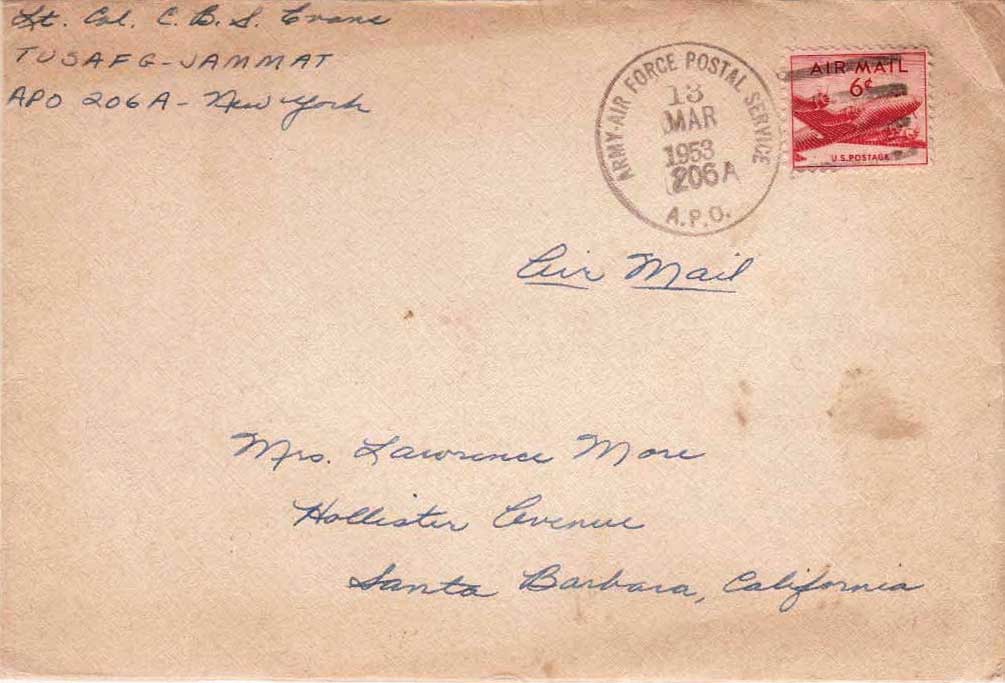 Lt. Col. C. B. S. Evans
TUSAFG-JAMMAT
APO 206A - New York
ARMY-AIR FORCE POSTAL SERVICE
13
MAR
1953
206A
A.P.O.
AIR MAIL
6¢
U.S. POSTAGE
Air Mail
Mrs. Lawrence More
Hollister Avenue
Santa Barbara, California